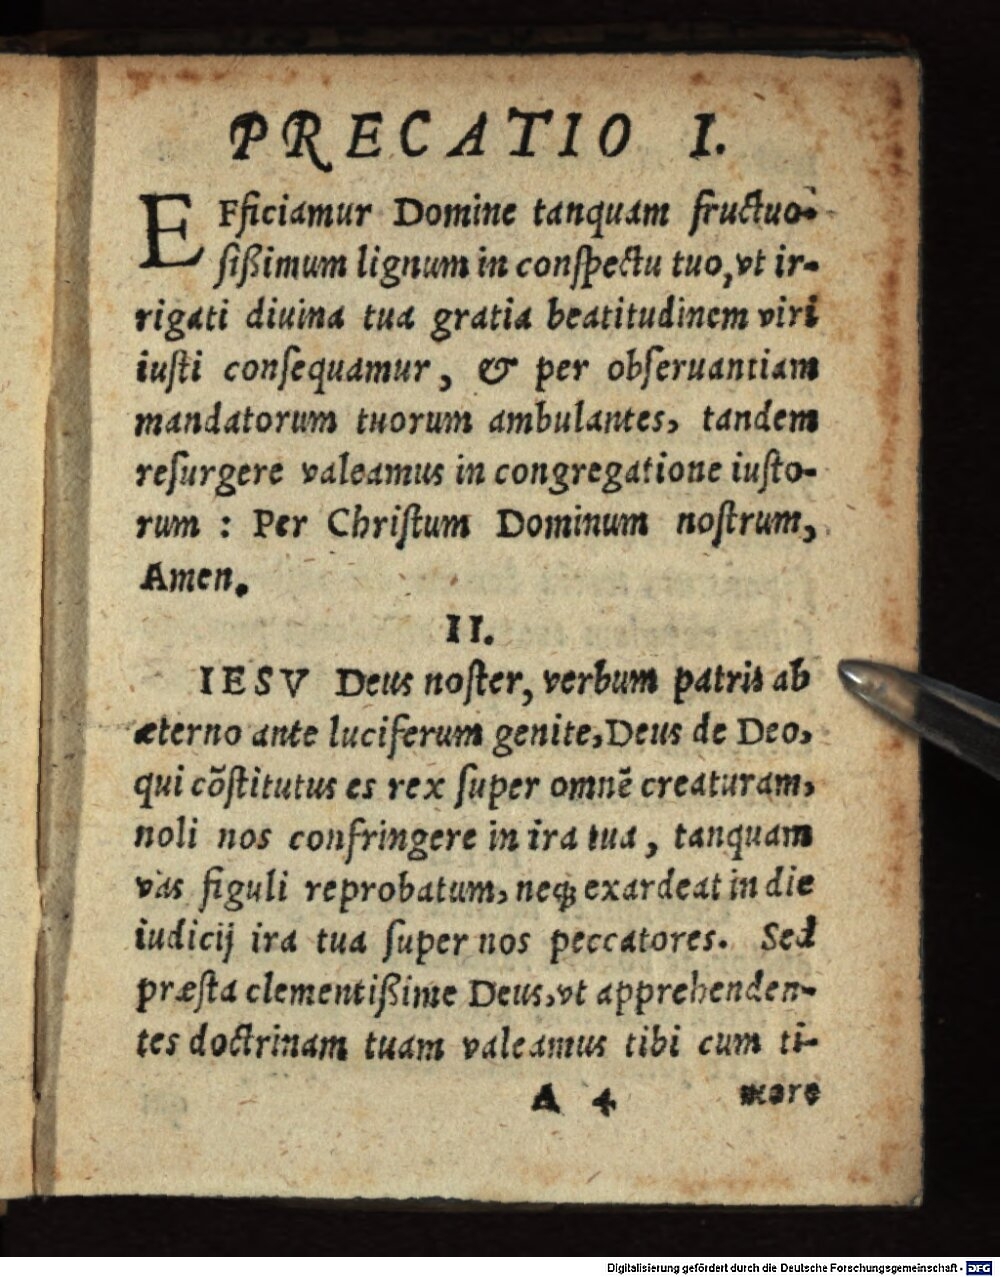 PRECATIO I.
EFficiamur Domine tanquam fructuo-
sißimum lignum in conspectu tuo, vt ir-
rigati diuina tua gratia beatitudinem viri
iusti consequamur, & per obseruantiam
mandatorum tuorum ambulantes, tandem
resurgere valeamus in congregatione iusto-
rum : Per Christum Dominum nostrum,
Amen.
II.
IESV Deus noster, verbum patris ab
æterno ante luciferum genite, Deus de Deo,
qui cõstitutus es rex super omnẽ creaturam,
noli nos confringere in ira tua, tanquam
vas figuli reprobatum, neq; exardeat in die
iudicij ira tua super nos peccatores. Sed
præsta clementißime Deus, vt apprehenden-
tes doctrinam tuam valeamus tibi cum ti-
A 4 more
Digitalisierung gefördert durch die Deutsche Forschungsgemeinschaft - DFG